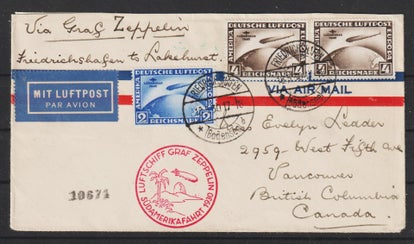 Via Graf Zeppelin
Friedrichshafen to Lakehurst.
MIT LUFTPOST
PAR AVION
DEUTSCHE LUFTPOST
2 2
REICHSMARK
DEUTSCHE LUFTPOST
4
REICHSMARK
DEUTSCHE LUFTPOST
4
REICHSMARK
FRIEDRICHSHAFEN
(Bodensee)
VIA AIR MAIL
Evelyn Leader
2959 - West Fifth Ave
Vancouver
British Columbia
Canada.
LUFTSCHIFF GRAF ZEPPELIN
SÜDAMERIKAFAHRT 1930
10671